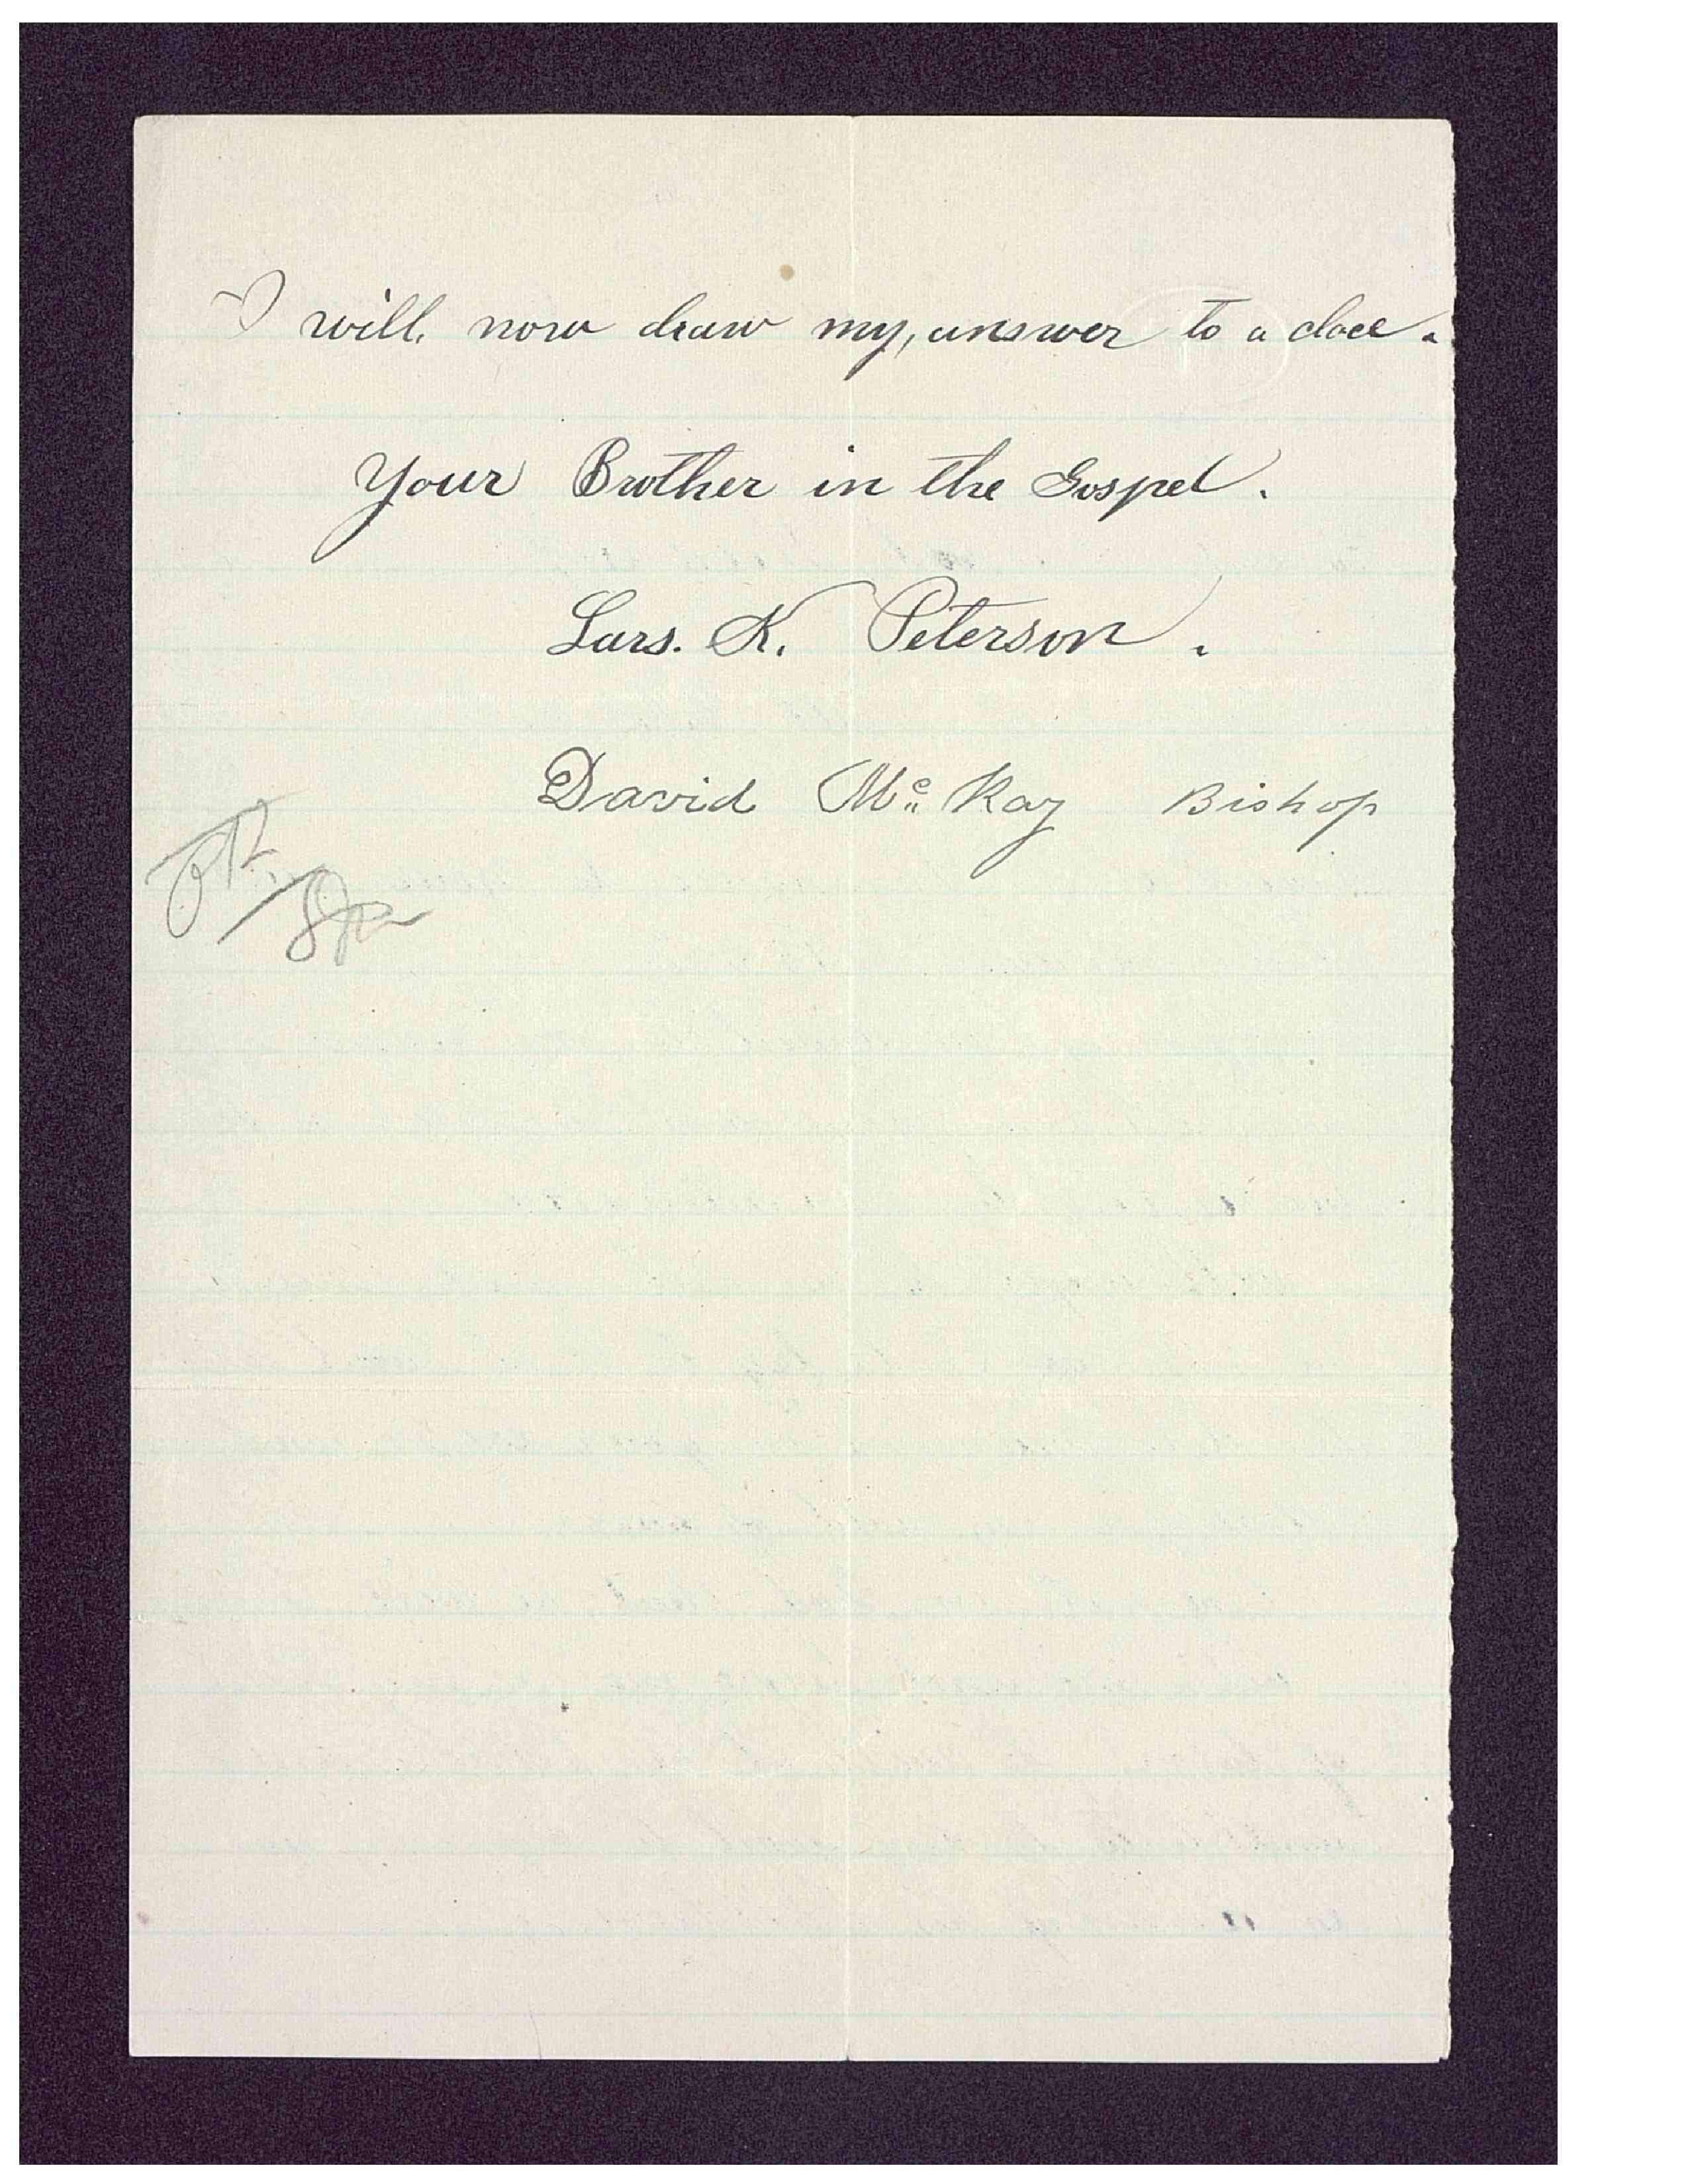 I will, now draw my, answer to a close.
Your Brother in the Gospel.
Lars. K. Peterson.
David McKay Bishop